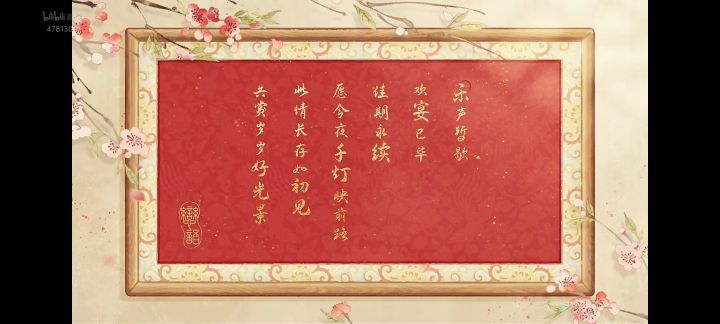 乐声暂歇
欢宴已毕
佳期永续
愿今夜千灯映前路
此情长存如初见
共赏岁岁好光景
bilibili
478130